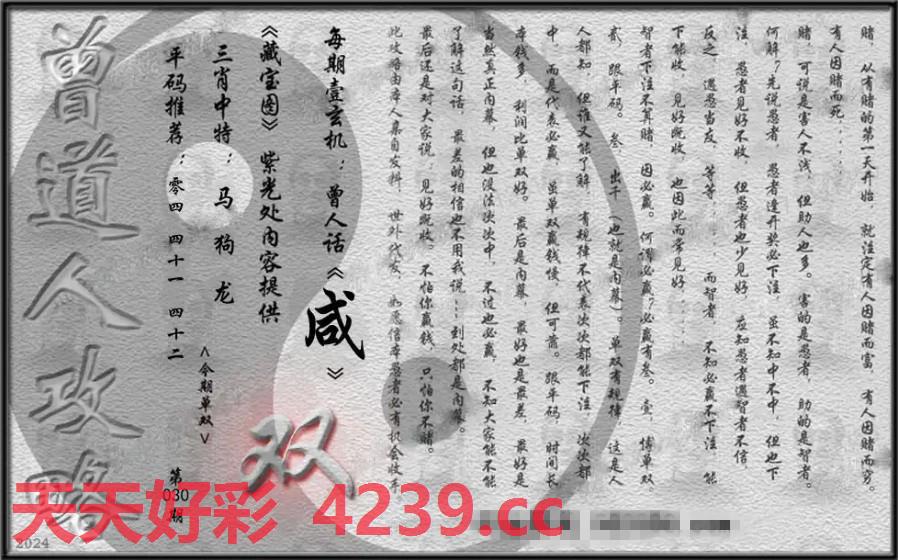 赌，从有赌的第一天开始，就注定有人因赌而富，有人因赌而穷。
有人因赌而死．．．．．．
赌，可说是害人不浅，但助人也多。害的是愚者，助的是智者。
何解？先说愚者，愚者逢开奖必下注，虽不知中不中，但也下
注，愚者见好不收，但愚者也少见好，应知愚者遇智者不信，
反之，遇愚当友，等等．．．，而智者，不知必赢不下注，能
下能收，见好既收，也因此而常见好．．．．
智者下注不算赌，因必赢。何谓必赢？必赢有叁。壹，博单双。
贰，跟平码。叁，出千（也就是内幕）。单双有规律，这是人
人都知，但谁又能了解，有规律不代表次次都能下注，次次都
中，而是代表必赢，虽单双赢钱慢，但可靠。跟平码，时间长
本钱多，利润比单双好。最后是内幕，最好也是最差，最好是
当然真正内幕，但也没法次次中，不过也必赢，不知大家能不能
了解这句话，最差的相信也不用我说…到处都是内幕。
最后还是对大家说，见好既收。不怕你赢钱，只怕你不赌。
此攻略由本人亲自发料，世外代友，如愿信本愚者必有机会收手
每期壹玄机：曾人话《咸》
《藏宝图》紫光处内容提供
三肖中特：马 狗 龙
平码推荐：零四 四十一 四十二
<今期单双>
双
第
030
期
曾道人攻略
天天好彩 4239.cc
2024